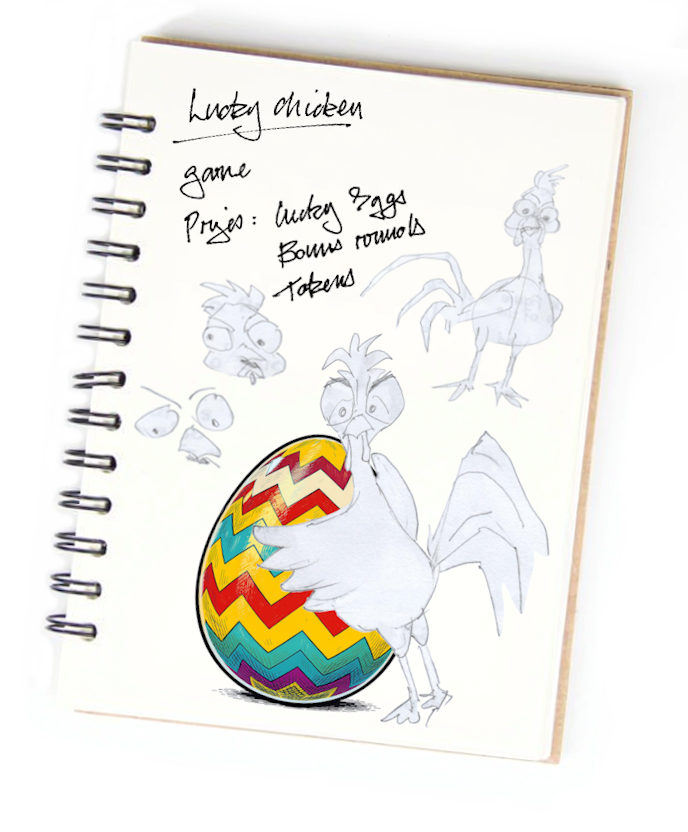 Lucky chicken
game
Prizes: lucky Eggs
Bonus rounds
Tokens